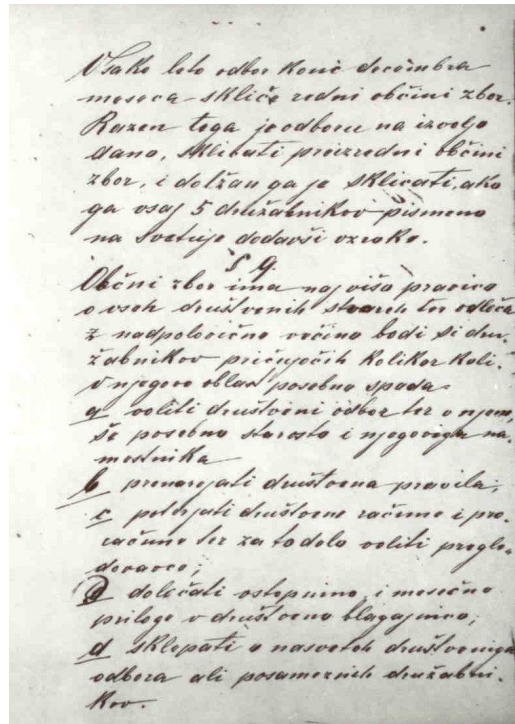 Vsako leto odbor konic decembra
meseca skliče redni občini zbor.
Razen tega je odboru na izvoljo
dano, sklicati preizredni občini
zbor, i dolžan ga je sklicati, ako
ga vsaj 5 družabnikov pismeno
na svetuje dodavši vzroke.
§ 9.
Občni zbor ima najviša pravico
o vseh društvenih stvareh ter odloča
z nadpolovično večino bodi si dru-
žabnikov pričujočih kolikor koli.
V njegovo oblast posebno spada:
a voliti društveni odbor ter v njem
še posebno starosto i njegoviga na-
mestnika
b prenarejati društvena pravila;
c potrjati društvene račune i pro-
račune ter za to delo voliti pregle-
dovavce;
d določati vstopnino i mesečne
priloge v društveno blagajnico;
d sklepati o nasvetih društveniga
odbora ali posameznih družabni-
kov.